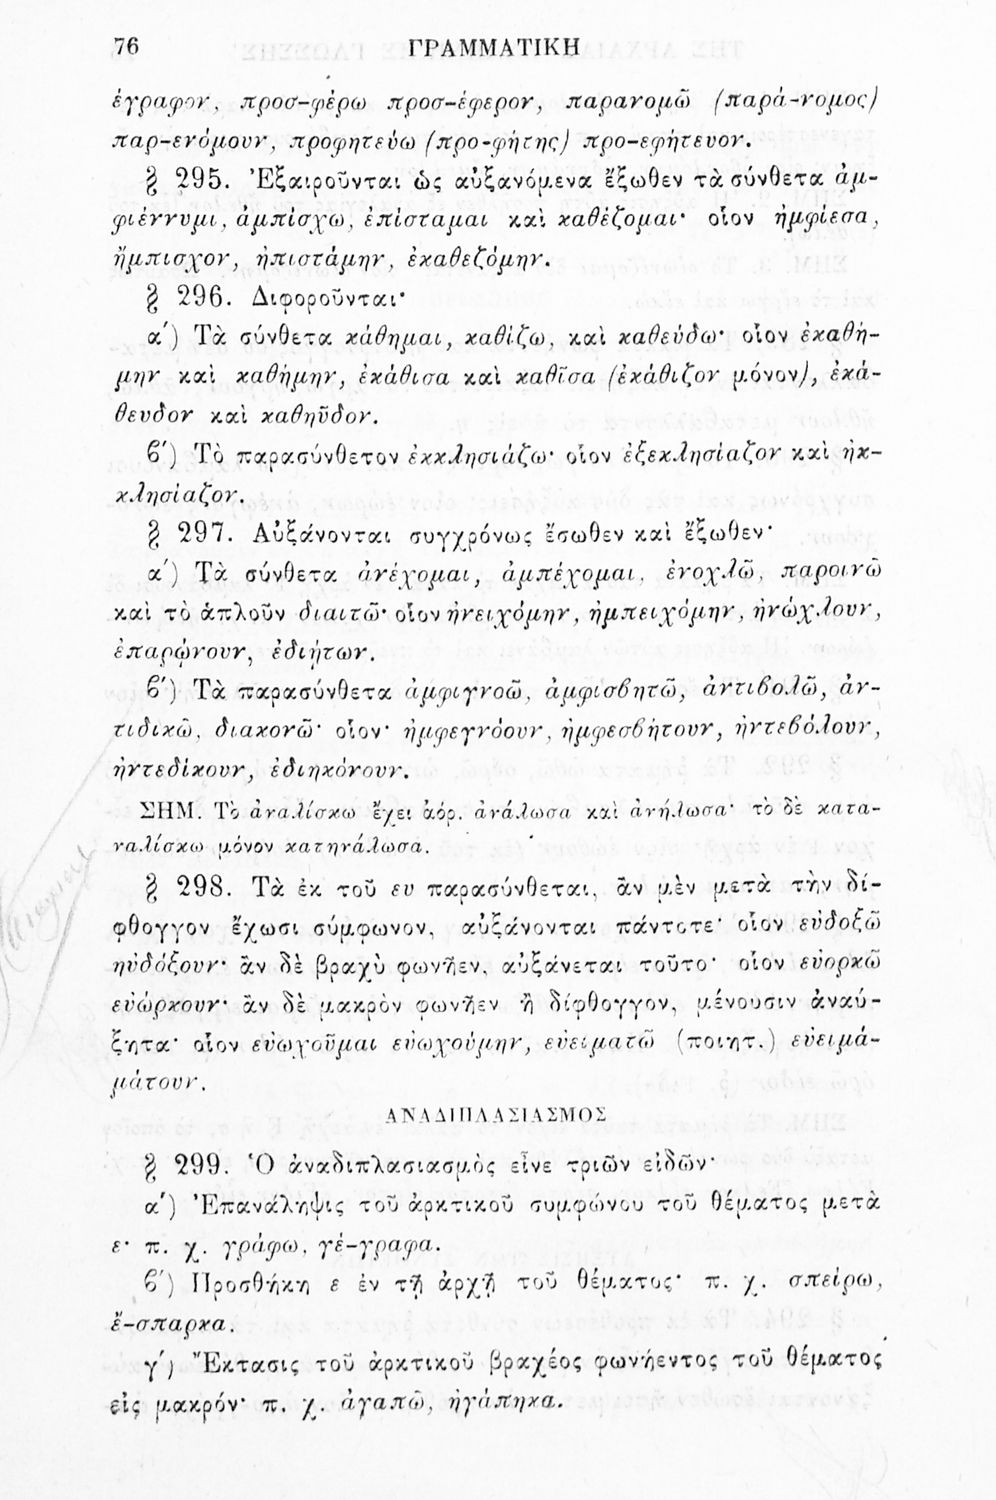 76 ΓΡΑΜΜΑΤΙΚΗ
έγραφον, προσ-φέρω προσ-έφερον, παρανομῶ (παρά-νομος)
παρ-ενόμουν, προφητεύω (προ-φήτης) προ-εφήτευον.
§ 295. Ἐξαιροῦνται ὡς αὐξανόμενα ἔξωθεν τὰ σύνθετα ἀμ-
φιέννυμι, ἀμπίσχω, ἐπίσταμαι καὶ καθέζομαι· οἷον ἠμφίεσα,
ἤμπισχον, ἠπιστάμην, ἐκαθεζόμην.
§ 296. Διφοροῦνται·
α΄) Τὰ σύνθετα κάθημαι, καθίζω, καὶ καθεύδω· οἷον ἐκαθή-
μην καὶ καθήμην, ἐκάθισα καὶ καθῖσα (ἐκάθιζον μόνον), ἐκά-
θευδον καὶ καθηῦδον.
β΄) Τὸ παρασύνθετον ἐκκλησιάζω· οἷον ἐξεκλησίαζον καὶ ἠκ-
κλησίαζον.
§ 297. Αὐξάνονται συγχρόνως ἔσωθεν καὶ ἔξωθεν·
α΄) Τὰ σύνθετα ἀνέχομαι, ἀμπέχομαι, ἐνοχλῶ, παροινῶ
καὶ τὸ ἁπλοῦν διαιτῶ· οἷον ἠνειχόμην, ἠμπειχόμην, ἠνώχλουν,
ἐπαρῴνουν, ἐδιῄτων.
β΄) Τὰ παρασύνθετα ἀμφιγνοῶ, ἀμφισβητῶ, ἀντιβολῶ, ἀν-
τιδικῶ, διακονῶ· οἷον· ἠμφεγνόουν, ἠμφεσβήτουν, ἠντεβόλουν,
ἠντεδίκουν, ἐδιηκόνουν.
ΣΗΜ. Τὸ ἀναλίσκω ἔχει ἀόρ. ἀνάλωσα καὶ ἀνήλωσα· τὸ δὲ κατα-
ναλίσκω μόνον κατηνάλωσα.
§ 298. Τὰ ἐκ τοῦ ευ παρασύνθεται, ἂν μὲν μετὰ τὴν δί-
φθογγον ἔχωσι σύμφωνον, αὐξάνονται πάντοτε· οἷον εὐδοξῶ
ηὐδόξουν· ἂν δὲ βραχὺ φωνῆεν, αὐξάνεται τοῦτο· οἷον εὐορκῶ
εὐώρκουν· ἂν δὲ μακρὸν φωνῆεν ἢ δίφθογγον, μένουσιν ἀναύ-
ξητα· οἷον εὐωχοῦμαι εὐωχούμην, εὐειματῶ (ποιητ.) εὐειμά-
μάτουν.
ΑΝΑΔΙΠΛΑΣΙΑΣΜΟΣ
§ 299. Ὁ ἀναδιπλασιασμὸς εἶνε τριῶν εἰδῶν·
α΄) Ἐπανάληψις τοῦ ἀρκτικοῦ συμφώνου τοῦ θέματος μετὰ
ε· π. χ. γράφω, γέ-γραφα.
β΄) Προσθήκη ε ἐν τῇ ἀρχῇ τοῦ θέματος· π. χ. σπείρω,
ἔ-σπαρκα.
γ΄) Ἔκτασις τοῦ ἀρκτικοῦ βραχέος φωνήεντος τοῦ θέματος
εἰς μακρόν· π. χ. ἀγαπῶ, ἠγάπηκα.